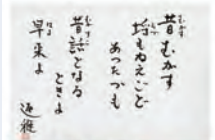 昔むかす
埒もねえごど
あったづも
昔話となる
ときよ
早来よ